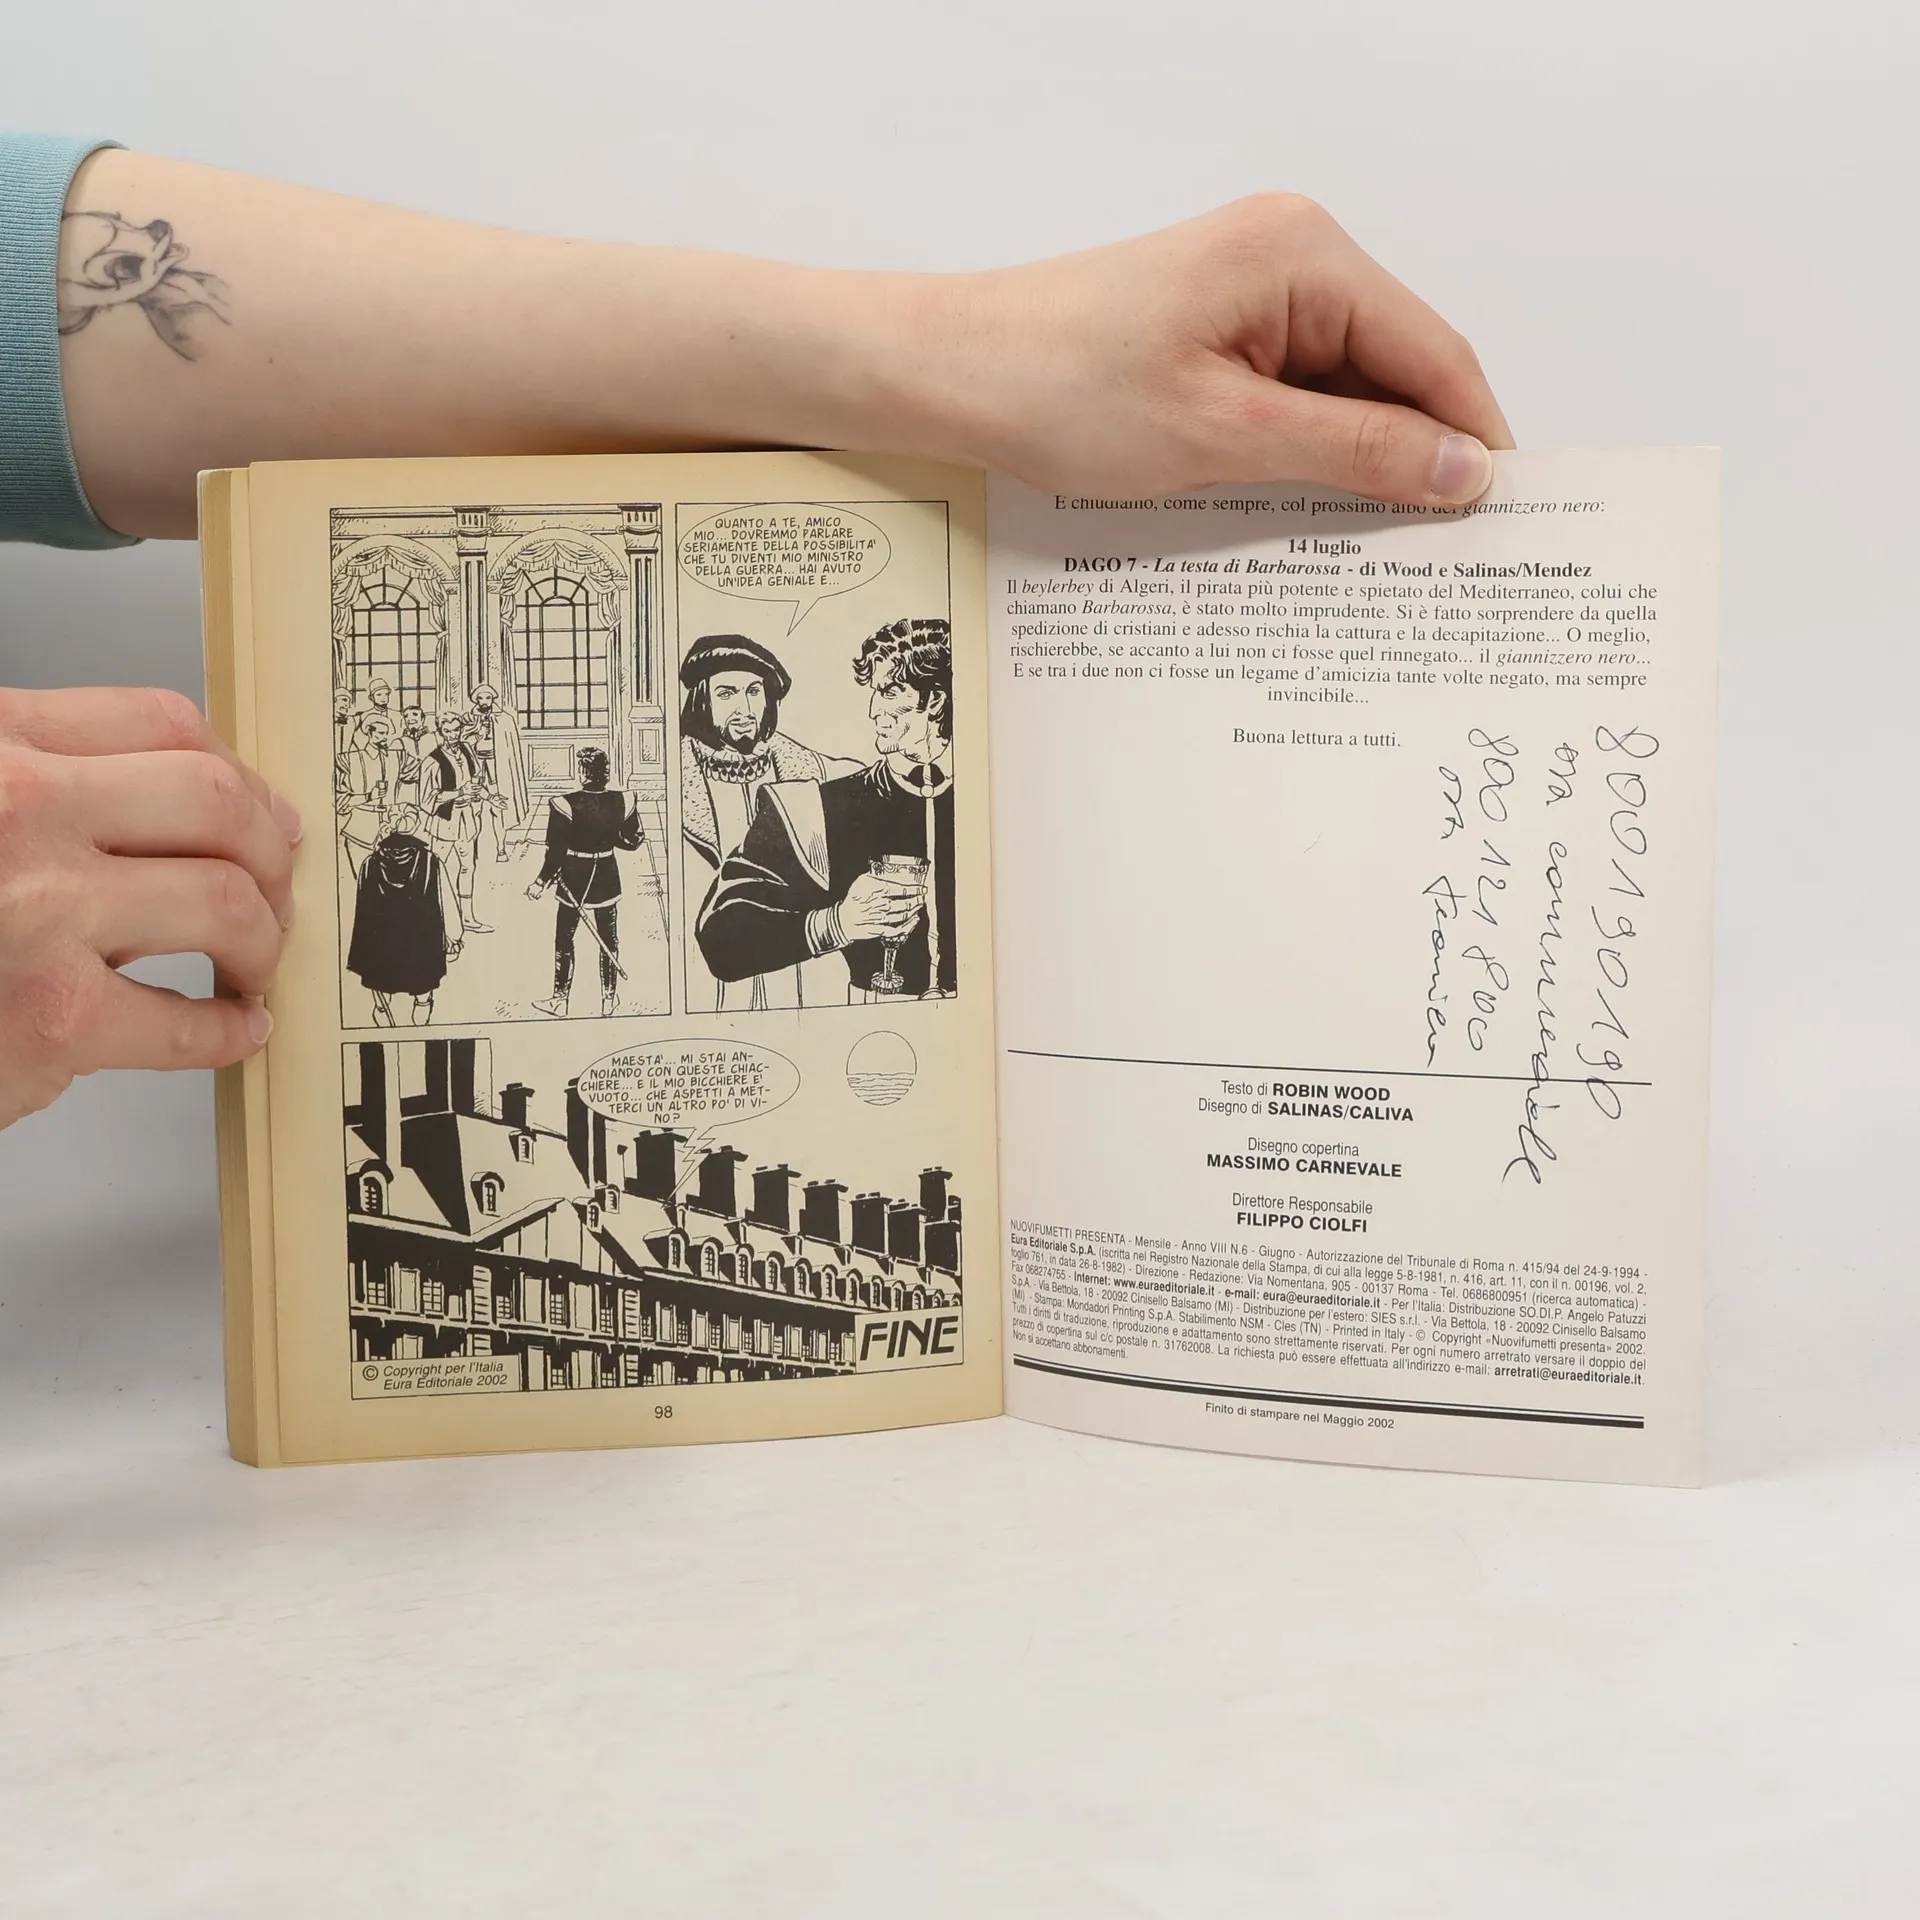 QUANTO A TE, AMICO
MIO... DOVREMMO PARLARE
SERIAMENTE DELLA POSSIBILITA'
CHE TU DIVENTI MIO MINISTRO
DELLA GUERRA... HAI AVUTO
UN'IDEA GENIALE E...
MAESTA'... MI STAI AN-
NOIANDO CON QUESTE CHIAC-
CHIERE... E IL MIO BICCHIERE E'
VUOTO... CHE ASPETTI A MET-
TERCI UN ALTRO PO' DI VI-
NO?
FINE
© Copyright per l'Italia
Eura Editoriale 2002
98
E chiudiamo, come sempre, col prossimo albo del giannizzero nero:
14 luglio
DAGO 7 - La testa di Barbarossa - di Wood e Salinas/Mendez
Il beylerbey di Algeri, il pirata più potente e spietato del Mediterraneo, colui che
chiamano Barbarossa, è stato molto imprudente. Si è fatto sorprendere da quella
spedizione di cristiani e adesso rischia la cattura e la decapitazione... O meglio,
rischierebbe, se accanto a lui non ci fosse quel rinnegato... il giannizzero nero...
E se tra i due non ci fosse un legame d'amicizia tante volte negato, ma sempre
invincibile...
Buona lettura a tutti.
800190190
commerciale
800 121 800
Testo di ROBIN WOOD
Disegno di SALINAS/CALIVA
Disegno copertina
MASSIMO CARNEVALE
Direttore Responsabile
FILIPPO CIOLFI
NUOVIFUMETTI PRESENTA - Mensile - Anno VIII N.6 - Giugno - Autorizzazione del Tribunale di Roma n. 415/94 del 24-9-1994 -
Eura Editoriale S.p.A. (iscritta nel Registro Nazionale della Stampa, di cui alla legge 5-8-1981, n. 416, art. 11, con il n. 00196, vol. 2,
foglio 761, in data 26-8-1982) - Direzione - Redazione: Via Nomentana, 905 - 00137 Roma - Tel. 0686800951 (ricerca automatica) -
Fax 068274755 - Internet: www.euraeditoriale.it - e-mail: eura@euraeditoriale.it - Per l'Italia: Distribuzione SO.DI.P. Angelo Patuzzi
S.p.A. - Via Bettola, 18 - 20092 Cinisello Balsamo (MI) - Distribuzione per l'estero: SIES s.r.l. - Via Bettola, 18 - 20092 Cinisello Balsamo
(MI) - Stampa: Mondadori Printing S.p.A. Stabilimento NSM - Cles (TN) - Printed in Italy - © Copyright «Nuovifumetti presenta» 2002.
Tutti i diritti di traduzione, riproduzione e adattamento sono strettamente riservati. Per ogni numero arretrato versare il doppio del
prezzo di copertina sul c/c postale n. 31762008. La richiesta può essere effettuata all'indirizzo e-mail: arretrati@euraeditoriale.it.
Non si accettano abbonamenti.
Finito di stampare nel Maggio 2002